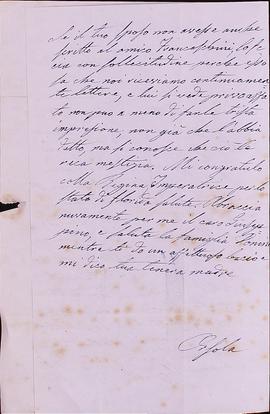 Se il tuo sposo non avesse anche
scritto al amico
con sollecitudine perche
la che noi riceviamo continuamen
te lettere, e lui si vede
to non puo a meno di farle trista
impressione, non già che l'abbia
detto, ma si conosce che cio le
reca mestizia. Mi congratulo
colla Regina Imperatrice per lo
stato di florida salute. Abbraccia
nuovamente per me il caro Giusep
pino, e saluta la famiglia
mentre te do un affettuoso bacio e
mi dico tua tenera madre
Orsola